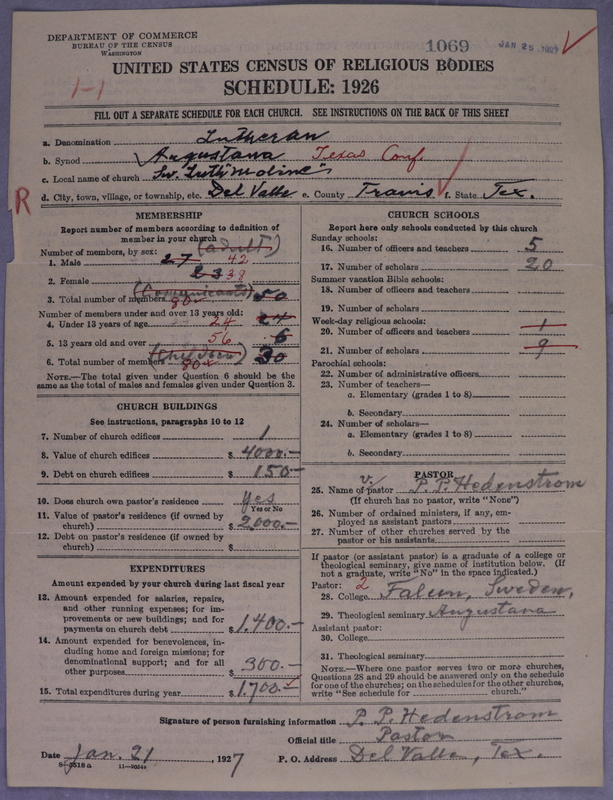 DEPARTMENT OF COMMERCE
BUREAU OF THE CENSUS
WASHINGTON
1069
JAN 25 1927
UNITED STATES CENSUS OF RELIGIOUS BODIES
SCHEDULE: 1926
1-1
FILL OUT A SEPARATE SCHEDULE FOR EACH CHURCH. SEE INSTRUCTIONS ON THE BACK OF THIS SHEET
a. Denomination Lutheran
b. Synod Augustana Texas Conf.
c. Local name of church Sw. Luth "Moline"
d. City, town, village, or township, etc. Del Valle e. County Travis f. State Tex.
R
MEMBERSHIP
Report number of members according to definition of
member in your church
(adult)
Number of members, by sex:
1. Male 27 42
2. Female 23 38
(Communicants)
3. Total number of members 80 50
Number of members under and over 13 years old:
4. Under 13 years of age 24 24
5. 13 years old and over 56 6
(Children)
6. Total number of members 80 30
NOTE.—The total given under Question 6 should be the
same as the total of males and females given under Question 3.
CHURCH BUILDINGS
See instructions, paragraphs 10 to 12
7. Number of church edifices 1
8. Value of church edifices $ 4000.—
9. Debt on church edifices $ 150.—
10. Does church own pastor's residence Yes
Yes or No
11. Value of pastor's residence (if owned by
church) $ 2000.—
12. Debt on pastor's residence (if owned by
church) $
EXPENDITURES
Amount expended by your church during last fiscal year
13. Amount expended for salaries, repairs,
and other running expenses; for im-
provements or new buildings; and for
payments on church debt $ 1.400.—
14. Amount expended for benevolences, in-
cluding home and foreign missions; for
denominational support; and for all
other purposes $ 300.—
15. Total expenditures during year $ 1.700.—
CHURCH SCHOOLS
Report here only schools conducted by this church
Sunday schools:
16. Number of officers and teachers 5
17. Number of scholars 20
Summer vacation Bible schools:
18. Number of officers and teachers
19. Number of scholars
Week-day religious schools:
20. Number of officers and teachers 1
21. Number of scholars 9
Parochial schools:
22. Number of administrative officers
23. Number of teachers—
a. Elementary (grades 1 to 8)
b. Secondary
24. Number of scholars—
a. Elementary (grades 1 to 8)
b. Secondary
PASTOR
25. Name of pastor P. P. Hedenstrom
(If church has no pastor, write "None")
26. Number of ordained ministers, if any, em-
ployed as assistant pastors
27. Number of other churches served by the
pastor or his assistants
If pastor (or assistant pastor) is a graduate of a college or
theological seminary, give name of institution below. (If
not a graduate, write "No" in the space indicated.)
Pastor: 2
28. College Falun, Sweden,
29. Theological seminary Augustana
Assistant pastor:
30. College
31. Theological seminary
NOTE.—Where one pastor serves two or more churches,
Questions 28 and 29 should be answered only on the schedule
for one of the churches; on the schedules for the other churches,
write "See schedule for church."
Signature of person furnishing information P. P. Hedenstrom
Official title Pastor
Date Jan. 21, 1927 P. O. Address Del Valle, Tex.